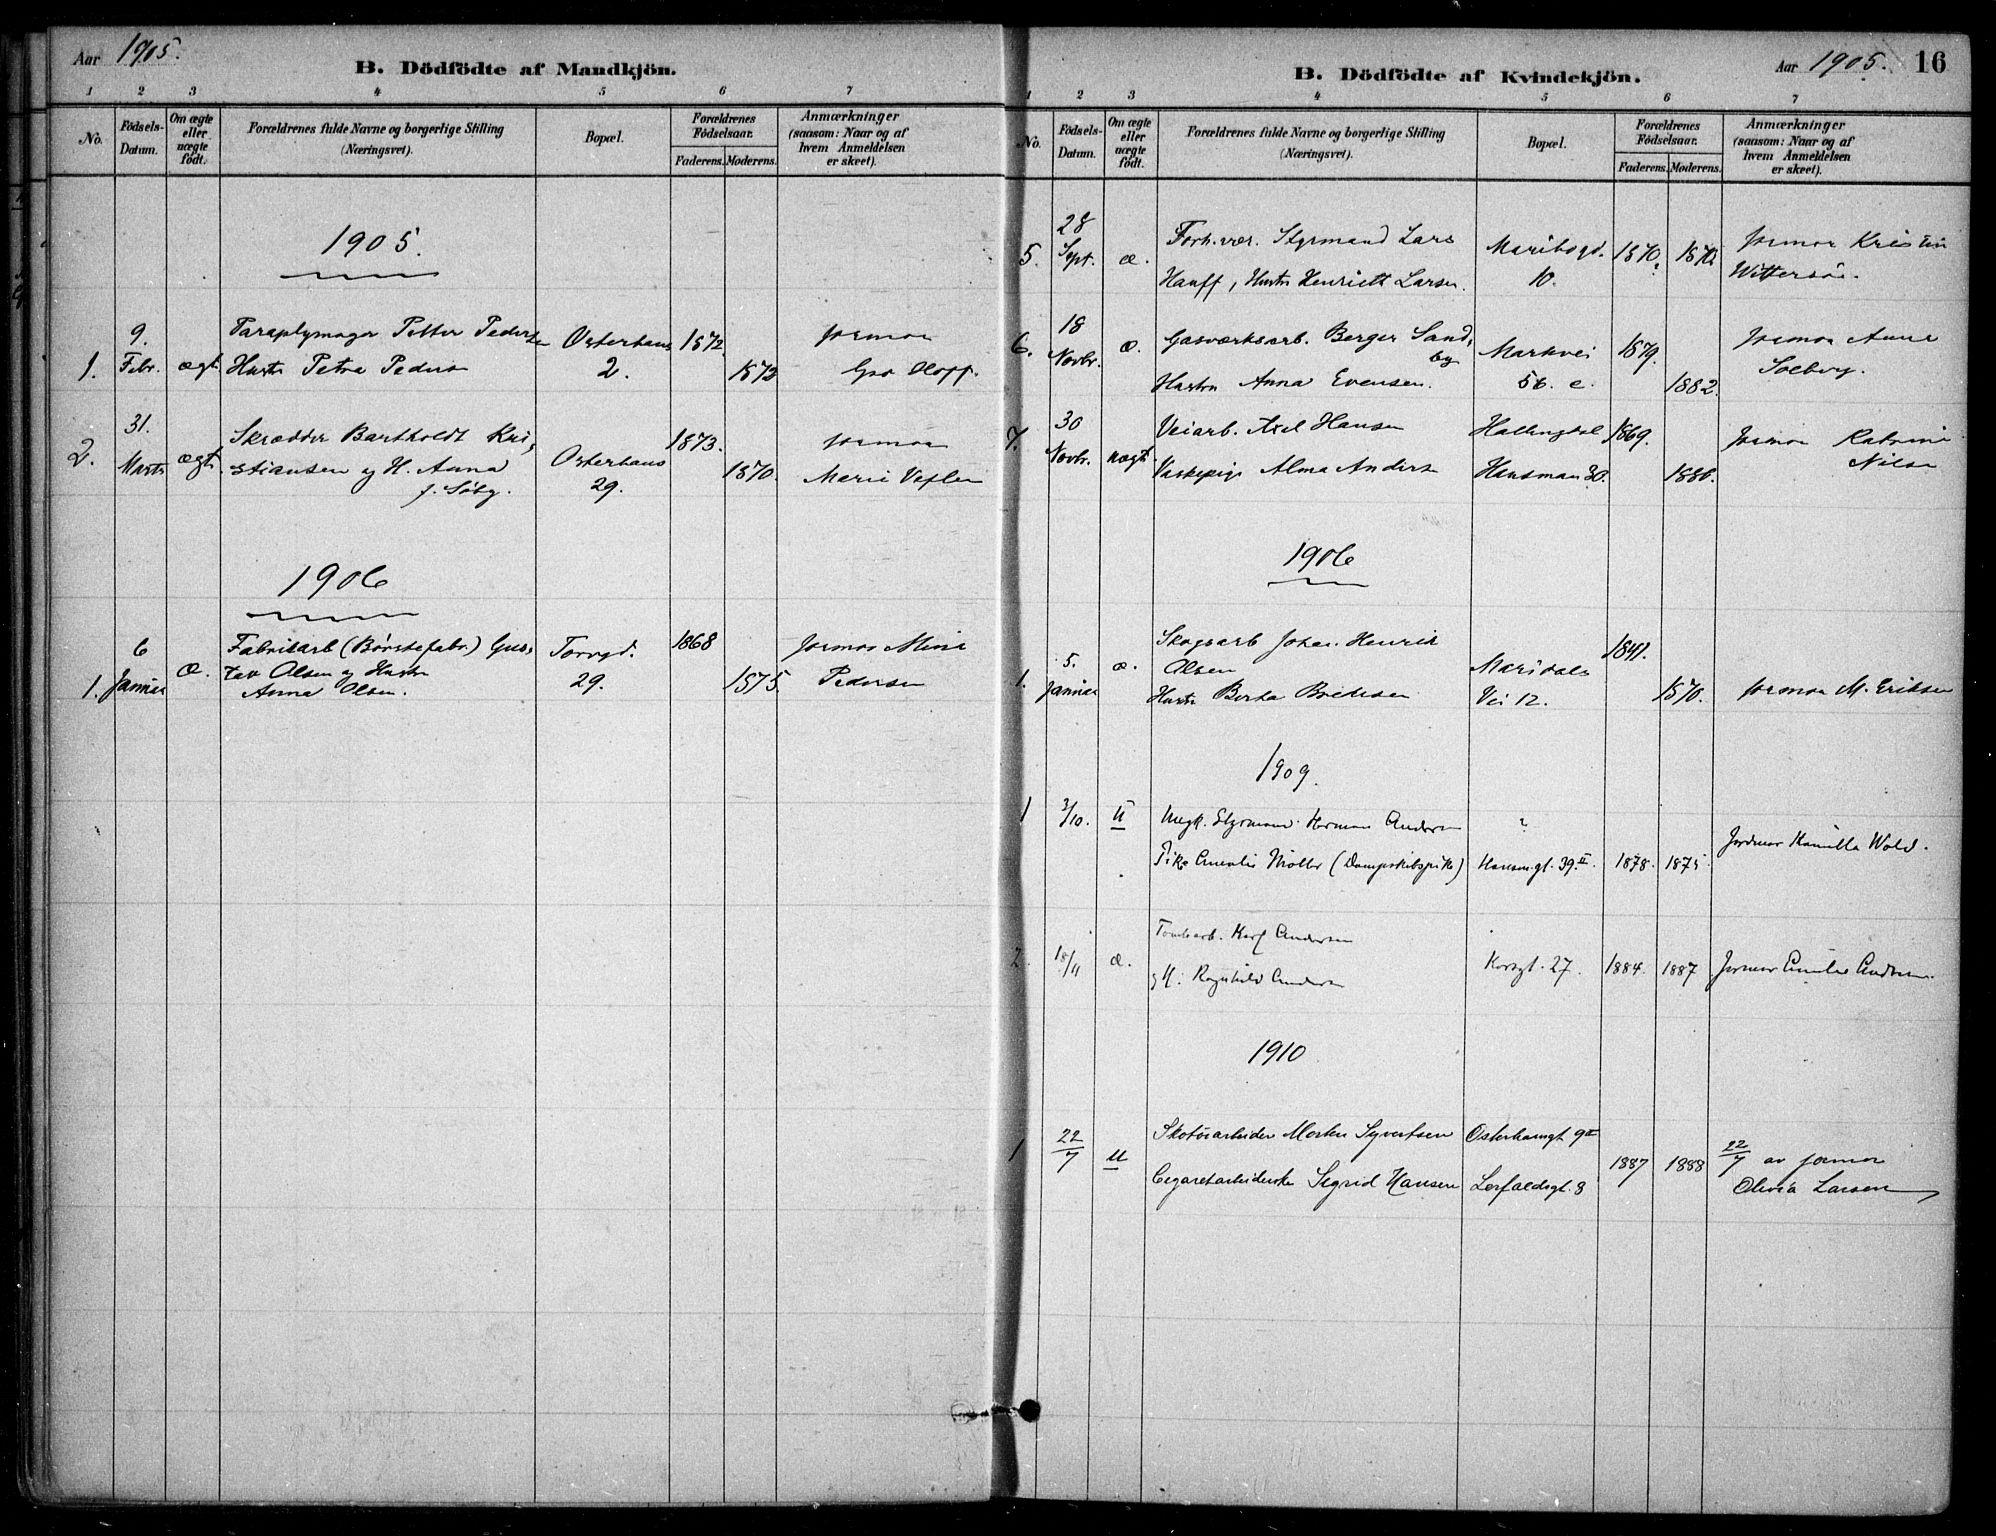 Aar 1905.
B. Dödfödte af Mandkjön.
1 2 3 4 5 6 7
No.
Födsels-
Datum.
Om ægte
eller
uægte
født.
Forældrenes fulde Navne og borgerlige Stilling
(Næringsvei).
Bopæl.
Forældrenes
Födselsaar.
Faderens. Moderens.
Anmærkninger
(saasom: Naar og af
hvem Anmeldelsen
er skeet).
1905.
9.
Febr.
1.
ægt.
Paraplymager Petter Pedersen
Hustr Petra Peders
Osterhaus
2.
1872.
1872
Jormor
Gro Hoff.
31.
Marts
2.
ægt.
Skrædder Bartholdt Kri,
stiansen og H. Anna
f. Söby.
Osterhaus
29.
1873.
1870.
Jormor
Marie Vefler
1906
6
Januar
1.
æ.
Fabrikarb (Børstefabr.) Gus,
tav Olsen og Hustr
Anna Olsen.
Torvgd.
29.
1868
1875.
Jormor Mina
Pedersen
Aar 1905. 16
B. Dödfödte af Kvindekjön.
1 2 3 4 5 6 7
No.
Födsels-
Datum.
Om ægte
eller
uægte
födt.
Forældrenes fulde Navne og borgerlige Stilling
(Næringsvei).
Bopæl.
Forældrenes
Födselsaar.
Faderens. Moderens.
Anmærkninger
(saasom: Naar og af
hvem Anmeldelsen
er skeet).
28
Sept.
5.
æ.
Forh.vær. Styrmand Lars
Hauff, Hustr Henriett Larsen.
Maribogd.
10.
1870. 1870.
Jormor Kristin
Wittersöe.
18
Novbr.
6.
æ.
Gasværksarb. Berger Sand,
by
Hustru Anna Evensen.
Markvei
56. c.
1879.
1882.
Jormor Anna
Solberg.
30
Novbr.
7.
uægt.
Veiarb. Axel Hansen
Vaskepige Alma Anders
Hallingdal
Hausman 30.
1869.
1886.
Jormor Katrine
Nilsen
1906
5.
Januar
1.
æ.
Skogsarb Johan Henrik
Olsen
Hustr Berta
Maridals
Vei 12.
1841.
1870.
Jormor M. Eriksen
1909.
1 3/10. U
Ungk. Styrmand Herman Andersen ?
Pike Amalie Möller (Dampskibspike) Hausmgt. 39. II. 1878. 1875
Jordmor Kamilla Wold.
2 18/11 æ.
Tomtearb. Karl Andersen
og H: Ragnhild Andersen
Korsgt. 27. 1884. 1887
Jormor Emilie Andersen.
1910
1 22/7 U
Skotöiarbeider Morten Syvertsen Osterhausgt 9 II
Cigaretarbeiderske Sigrid Hansen Lerfaldsgt. 8
1887 1888
22/7 av Jormor
Olivia Larsen